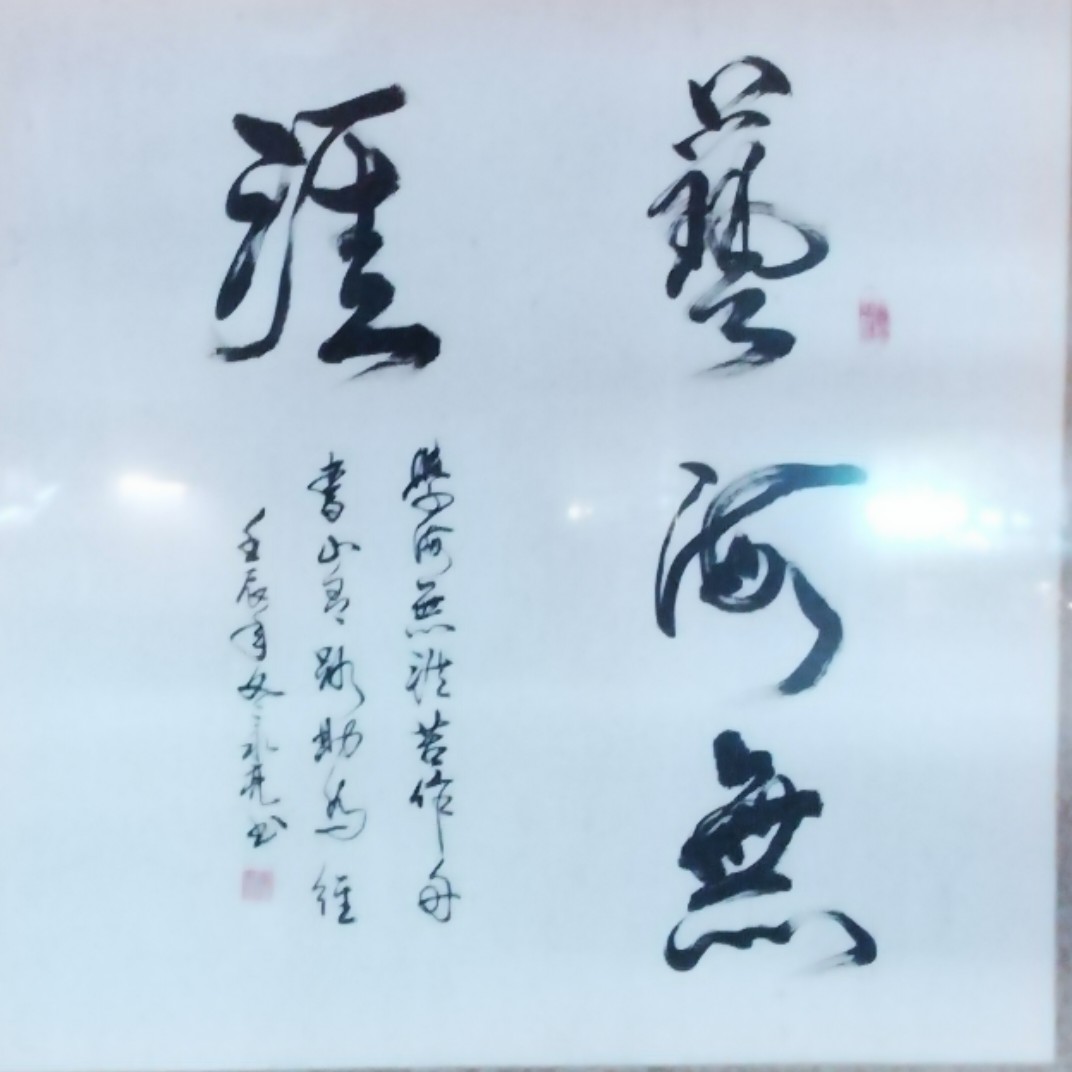 藝海無
涯
學海無涯苦作舟
書山有路勤為徑
壬辰年冬永亮书